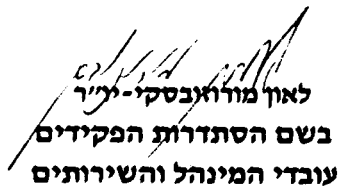 לאון מורוזובסקי-יו״ר
בשם הסתדרות הפקידים
עובדי המינהל והשירותים